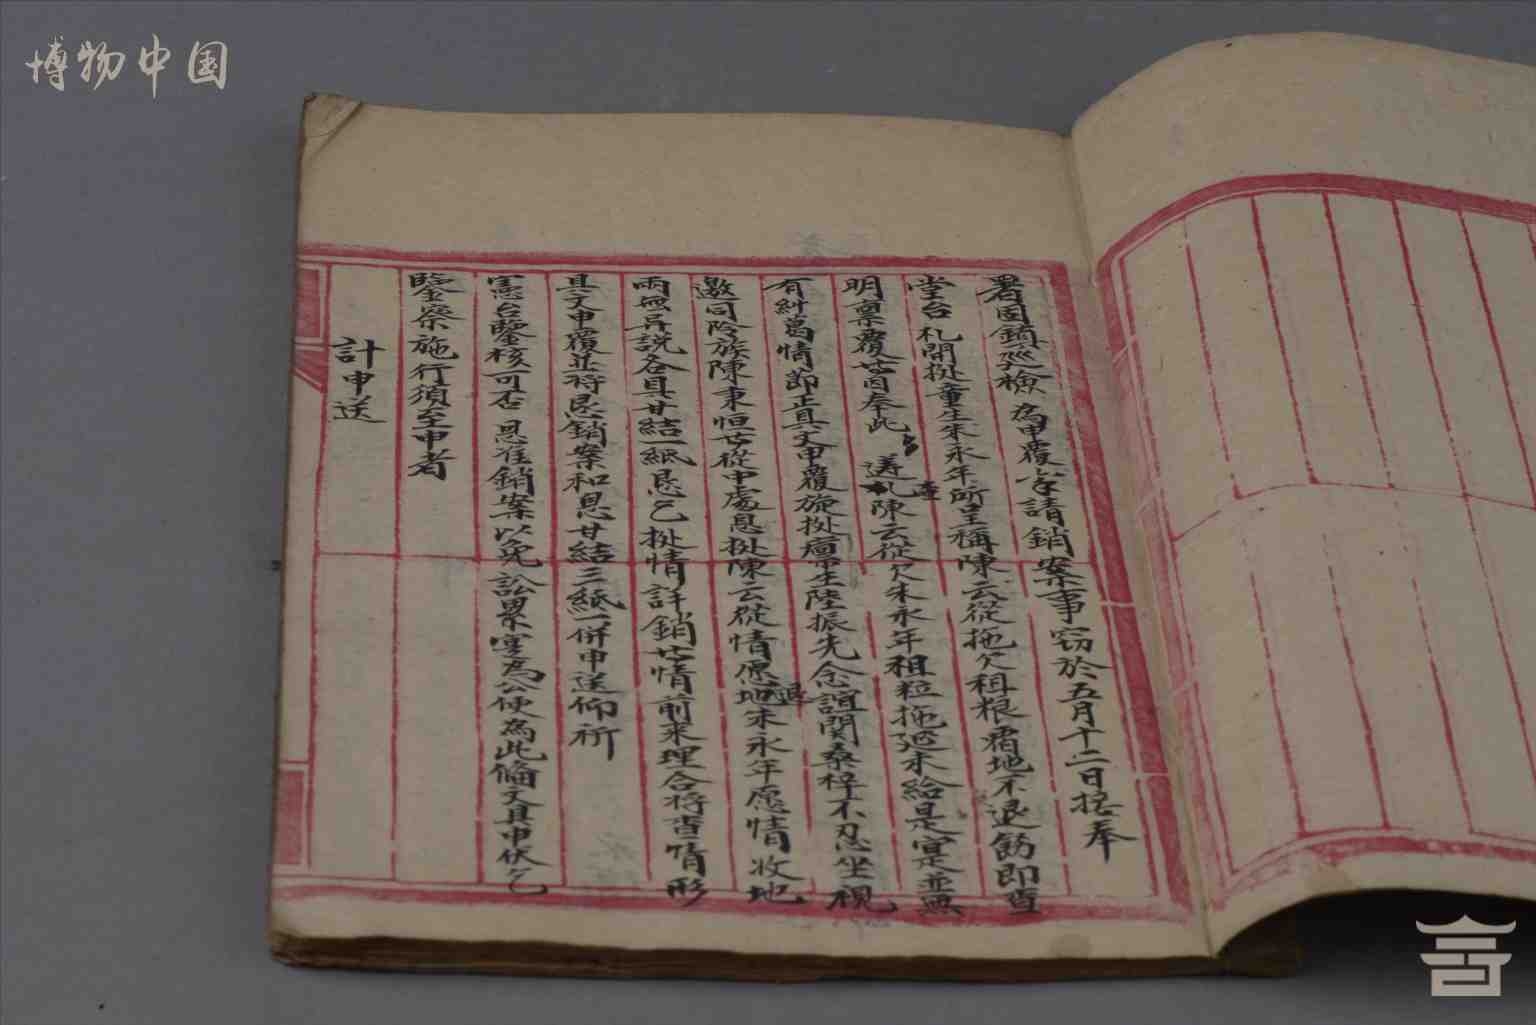 博物中国
署固鎮廵檢為申覆叅請銷案事窃於五月十二日接奉
堂台札開拠童生朱永年所呈稱陳云從拖欠租粮霸地不退飭即查
明稟覆等因奉此遂查陳云從欠朱永年租粒拖延未給是寔並無
有糾葛情節正具文申覆旋拠廩生陸振先念誼関桑梓不忍坐視
邀同隣族陳秉恒等從中處息拠陳云從情愿退地朱永年愿情收地
両無异説各具甘結一紙恳乞拠情詳銷等情前来理合将查情形
具文申覆並将恳銷案和息甘結三紙一併申送仰祈
憲台鑒核可否恩准銷案以免訟累寔為公便為此俻文具申伏乞
鑒察施行須至申者
計申送